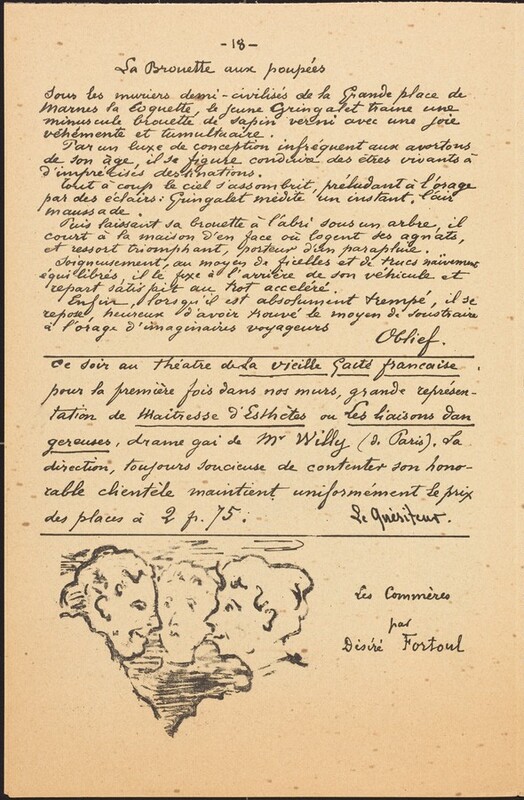 -18-
La Brouette aux poupées
Sous les muriers demi-civilisés de la Grande place de
Marnes la Coquette, le jeune Gringalet traine une
minuscule brouette de sapin verni avec une joie
véhémente et tumultuaire.
Par un luxe de conception infréquent aux avortons
de son âge, il se figure conduire des êtres vivants à
d'imprécises destinations.
Tout à coup le ciel s'assombrit, préludant à l'orage
par des éclairs: Gringalet médite un instant, l'air
maussade.
Puis laissant sa brouette à l'abri sous un arbre, il
court à la maison d'en face où logent ses agnats,
et ressort triomphant, porteur d'un parapluie.
Soigneusement, au moyen de ficelles et de trucs naïvement
équilibrés, il le fixe à l'arrière de son véhicule et
repart satisfait au trot accéléré.
Enfin, lorsqu'il est absolument trempé, il se
repose, heureux d'avoir trouvé le moyen de soustraire
à l'orage d'imaginaires voyageurs
Oblief.
Ce soir au théatre de La vieille Gaité française,
pour la première fois dans nos murs, grande représen-
tation de Maitresse d'Esthètes ou Les liaisons dan
gereuses, drame gai de Mr Willy (de Paris). La
direction, toujours soucieuse de contenter son hono-
rable clientèle maintient uniformément le prix
des places à 2 fr. 75.
Le Quériteur.
Les Commères
par
Désiré Fortoul